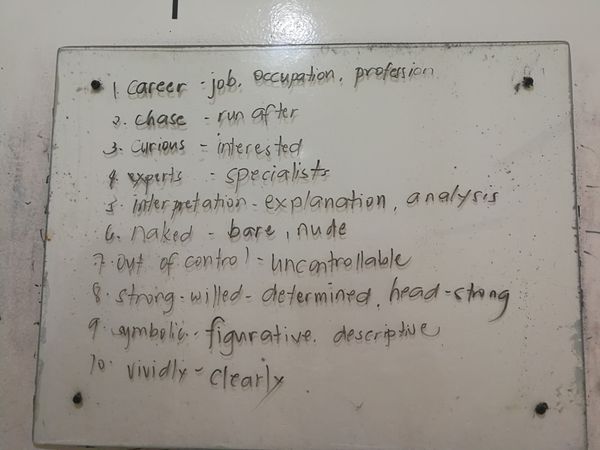 1. career - job, occupation, profession
2. chase - run after
3. curious - interested
4. experts - specialists
5. interpretation - explanation, analysis
6. naked - bare, nude
7. out of control - uncontrollable
8. strong-willed - determined, head-strong
9. symbolic - figurative, descriptive
10. vividly - clearly